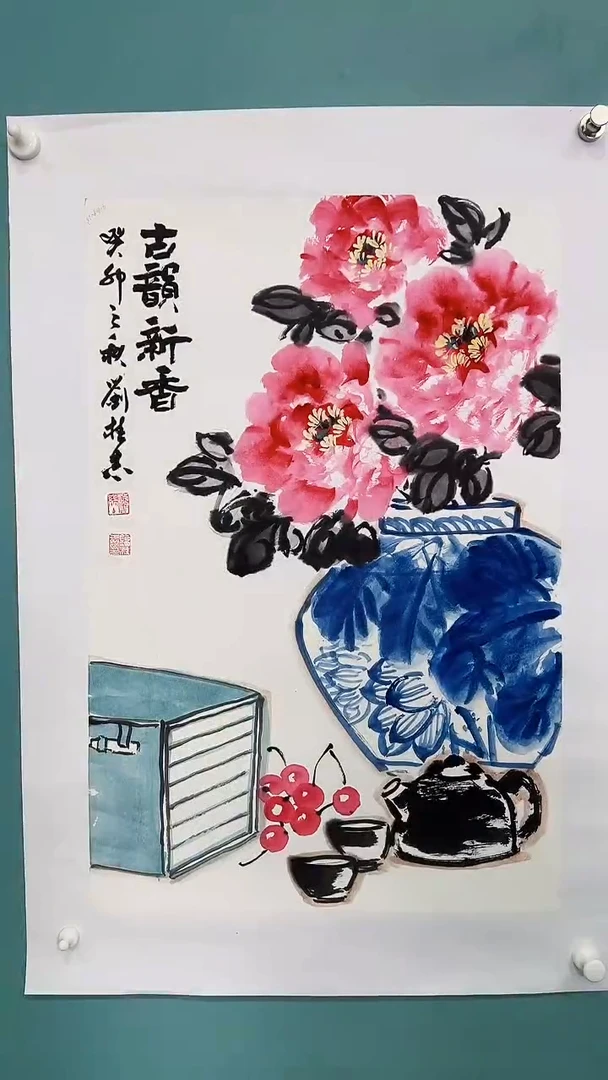 古韻新香
癸卯之秋刘桂志